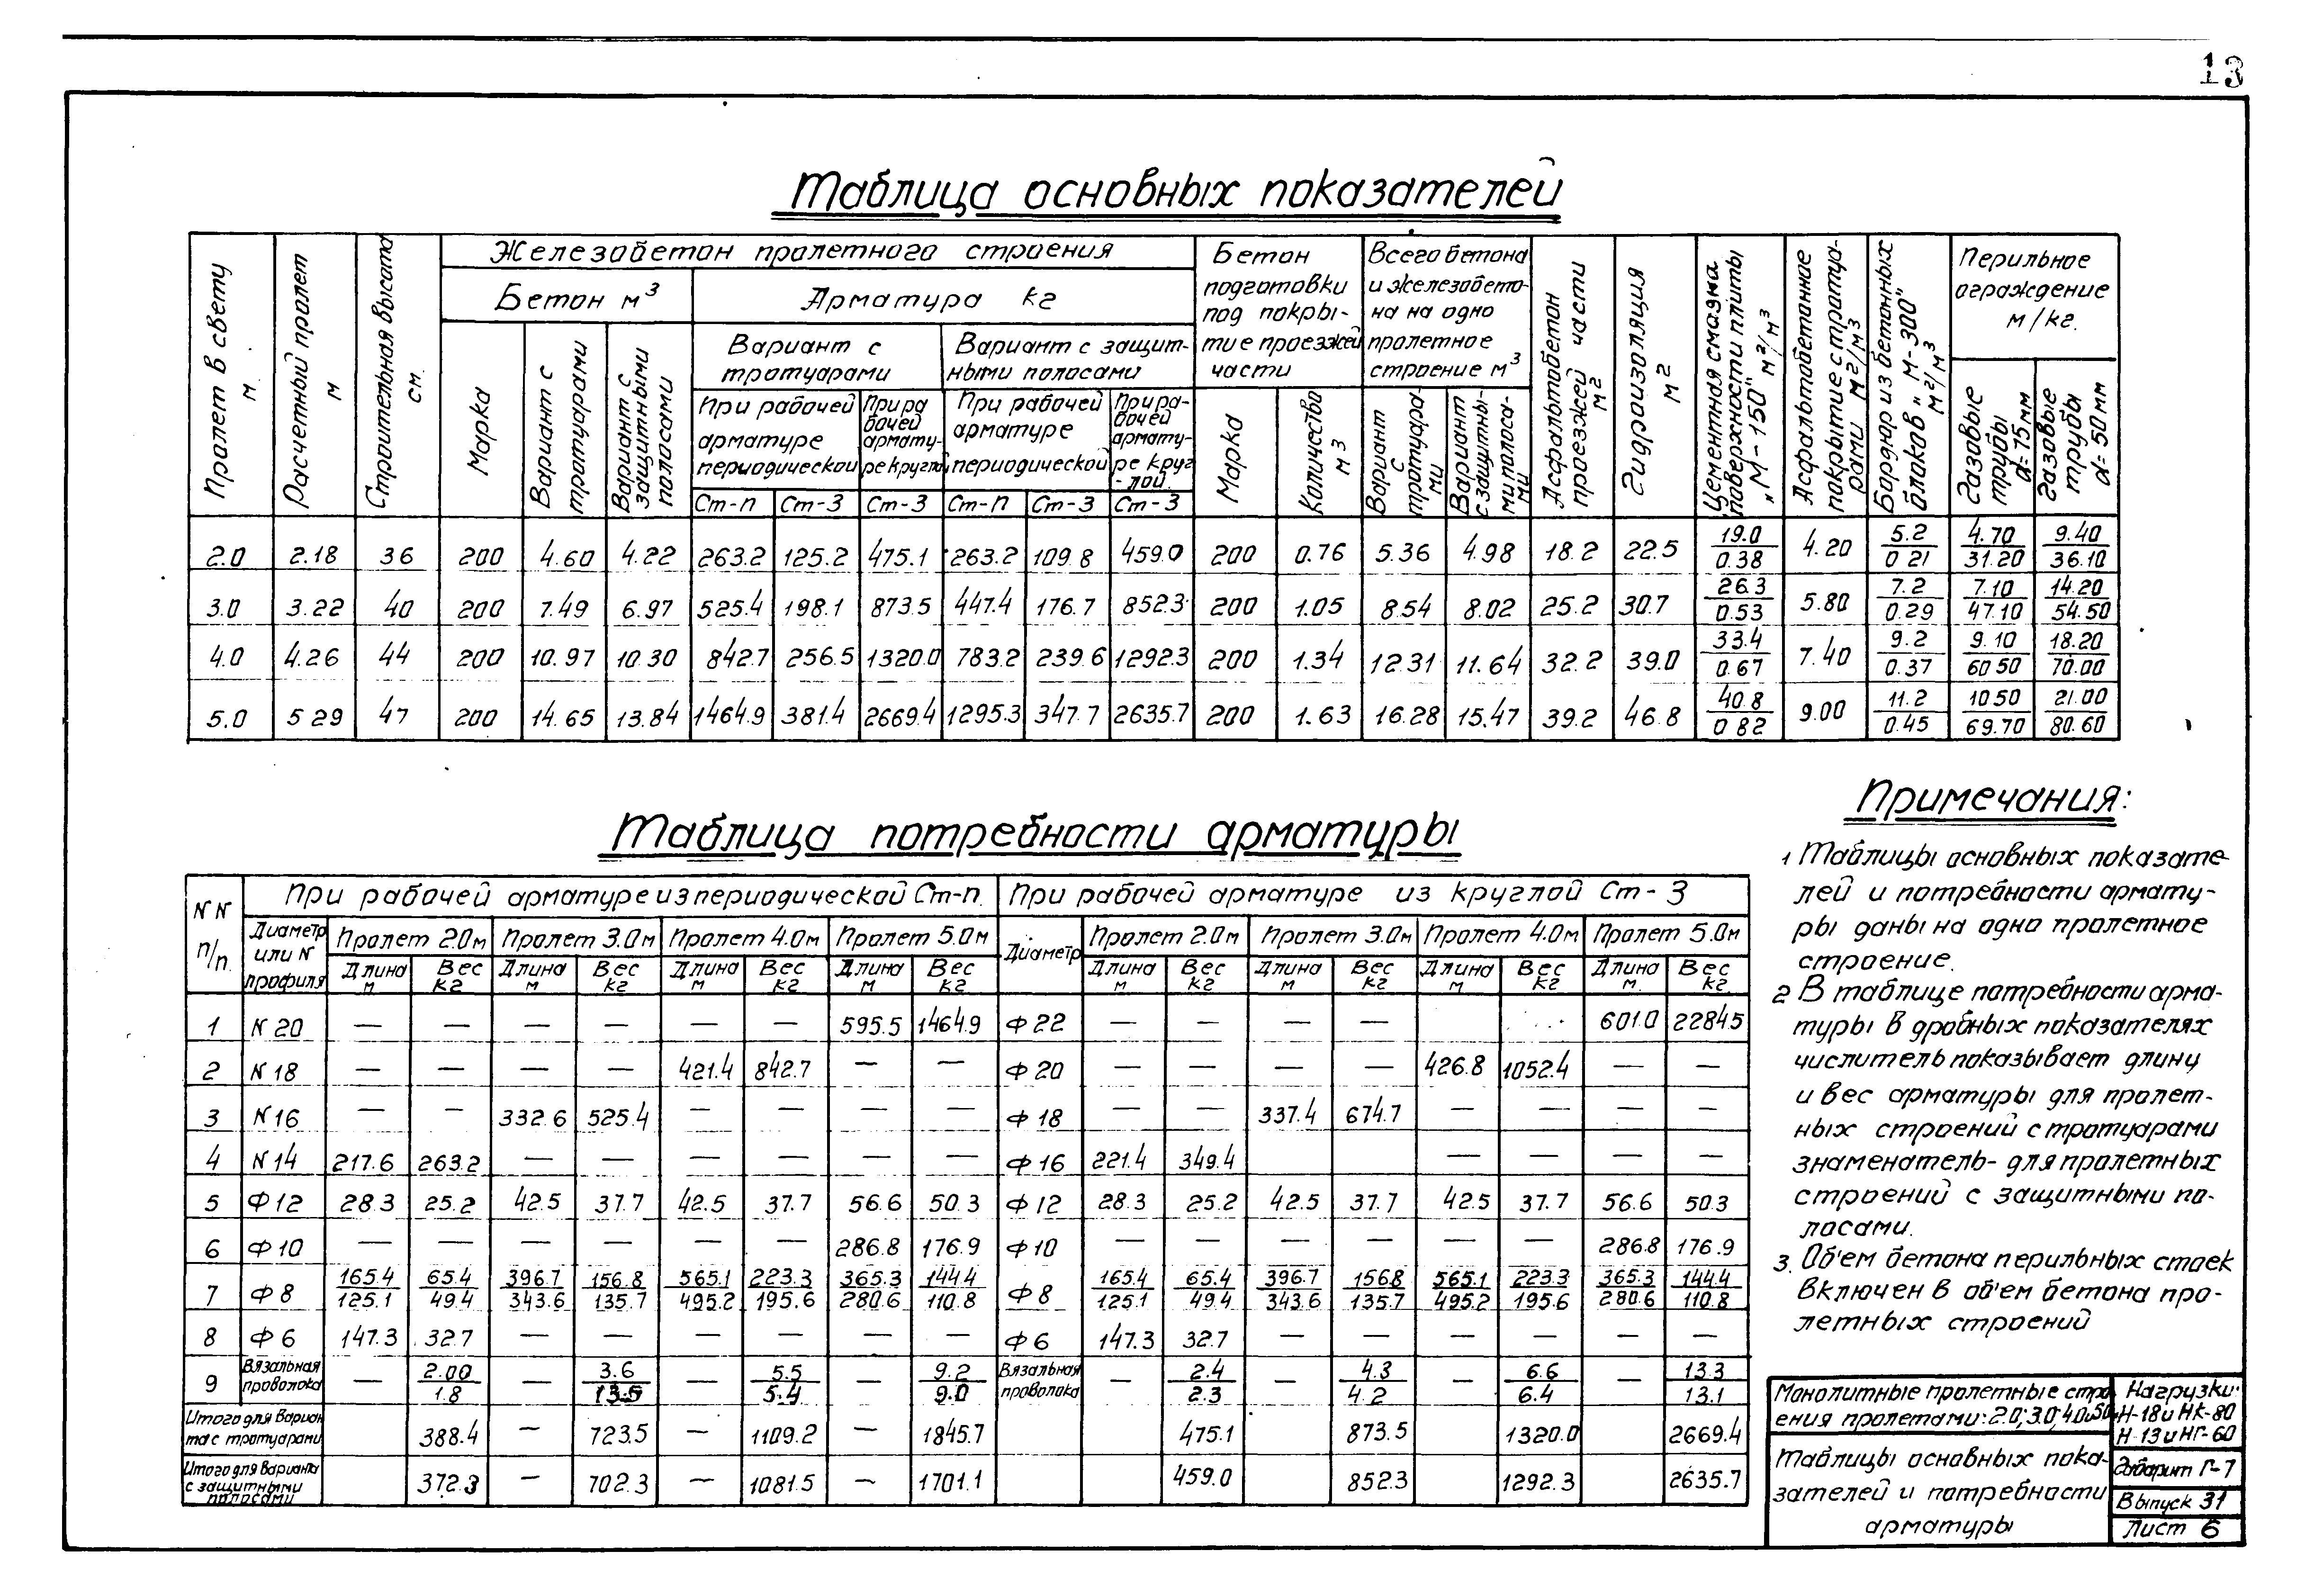 13
Таблица основных показателей
Пролет в свету м.
Расчетный пролет м
Строительная высота см.
Железобетон пролетного строения
Бетон м³
Арматура кг
Марка
Вариант с тротуарами
Вариант с защитными полосами
Вариант с тротуарами
Вариант с защитными полосами
При рабочей арматуре периодической
При рабочей арматуре круглой
При рабочей арматуре периодической
При рабочей арматуре круглой
Ст-п Ст-3 Ст-3 Ст-п Ст-3 Ст-3
Бетон подготовки под покрытие проезжей части
Марка
Количество м³
Всего бетона и железобетона на одно пролетное строение м³
Вариант с тротуарами
Вариант с защитными полосами
Асфальтобетон проезжей части м²
Гидроизоляция м²
Цементная смазка поверхности плиты „М-150" м²/м³
Асфальтобетонное покрытие тротуарами м²/м³
Бордюр из бетонных блоков „М-300" м²/м³
Перильное ограждение м/кг.
Газовые трубы d=75мм
Газовые трубы d=50мм
2.0 2.18 36 200 4.60 4.22 263.2 125.2 475.1 263.2 109.8 459.0 200 0.76 5.36 4.98 18.2 22.5 19.0/0.38 4.20 5.2/0 21 4.70/31.20 9.40/36.10
3.0 3.22 40 200 7.49 6.97 525.4 198.1 873.5 447.4 176.7 852.3 200 1.05 8.54 8.02 25.2 30.7 26.3/0.53 5.80 7.2/0.29 7.10/47.10 14.20/54.50
4.0 4.26 44 200 10.97 10.30 842.7 256.5 1320.0 783.2 239.6 1292.3 200 1.34 12.31 11.64 32.2 39.0 33.4/0.67 7.40 9.2/0.37 9.10/60 50 18.20/70.00
5.0 5 29 47 200 14.65 13.84 1464.9 381.4 2669.4 1295.3 347.7 2635.7 200 1.63 16.28 15.47 39.2 46.8 40.8/0 82 9.00 11.2/0.45 10 50/69.70 21.00/80.60
Таблица потребности арматуры
NN п/п.
При рабочей арматуре из периодической Ст-п.
При рабочей арматуре из круглой Ст-3
Диаметр или N профиля
Пролет 2.0м Пролет 3.0м Пролет 4.0м Пролет 5.0м
Диаметр
Пролет 2.0м Пролет 3.0м Пролет 4.0м Пролет 5.0м
Длина м Вес кг Длина м Вес кг Длина м Вес кг Длина м Вес кг
Длина м Вес кг Длина м Вес кг Длина м Вес кг Длина м Вес кг
1 N 20 — — — — — — 595.5 1464.9 Ф 22 — — — — 601.0 2284.5
2 N 18 — — — — 421.4 842.7 — — Ф 20 — — — — 426.8 1052.4 — —
3 N 16 — — 332.6 525.4 — — — — Ф 18 — — 337.4 674.7 — — — —
4 N 14 217.6 263.2 — — — — — — Ф 16 221.4 349.4 — — — —
5 Ф 12 28.3 25.2 42.5 37.7 42.5 37.7 56.6 50.3 Ф 12 28.3 25.2 42.5 37.7 42.5 37.7 56.6 50.3
6 Ф 10 — — — — — — 286.8 176.9 Ф 10 — — — — — — 286.8 176.9
7 Ф 8 165.4/125.1 65.4/49.4 396.7/343.6 156.8/135.7 565.1/495.2 223.3/195.6 365.3/280.6 144.4/110.8 Ф 8 165.4/125.1 65.4/49.4 396.7/343.6 156.8/135.7 565.1/495.2 223.3/195.6 365.3/280.6 144.4/110.8
8 Ф 6 147.3 32.7 — — — — — — Ф 6 147.3 32.7 — — — — — —
9 Вязальная проволока — 2.00/1.8 — 3.6/13.5 — 5.5/5.4 — 9.2/9.0 Вязальная проволока — 2.4/2.3 — 4.3/4.2 — 6.6/6.4 — 13.3/13.1
Итого для варианта с тротуарами 388.4 — 723.5 — 1109.2 — 1845.7 475.1 873.5 1320.0 2669.4
Итого для варианта с защитными полосами 372.3 — 702.3 — 1081.5 — 1701.1 459.0 852.3 1292.3 2635.7
Примечания:
1 Таблицы основных показате-
лей и потребности армату-
ры даны на одно пролетное
строение.
2 В таблице потребности арма-
туры в дробных показателях
числитель показывает длину
и вес арматуры для пролет-
ных строений с тротуарами
знаменатель- для пролетных
строений с защитными по-
лосами.
3. Об'ем бетона перильных стоек
включен в об'ем бетона про-
летных строений
Монолитные пролетные стро-
ения пролетами: 2.0; 3.0; 4.0 и 5.0м
Нагрузки:
Н-18 и НК-80
Н-13 и НГ-60
Таблицы основных пока-
зателей и потребности
арматуры
Габарит Г-7
Выпуск 31
Лист 6